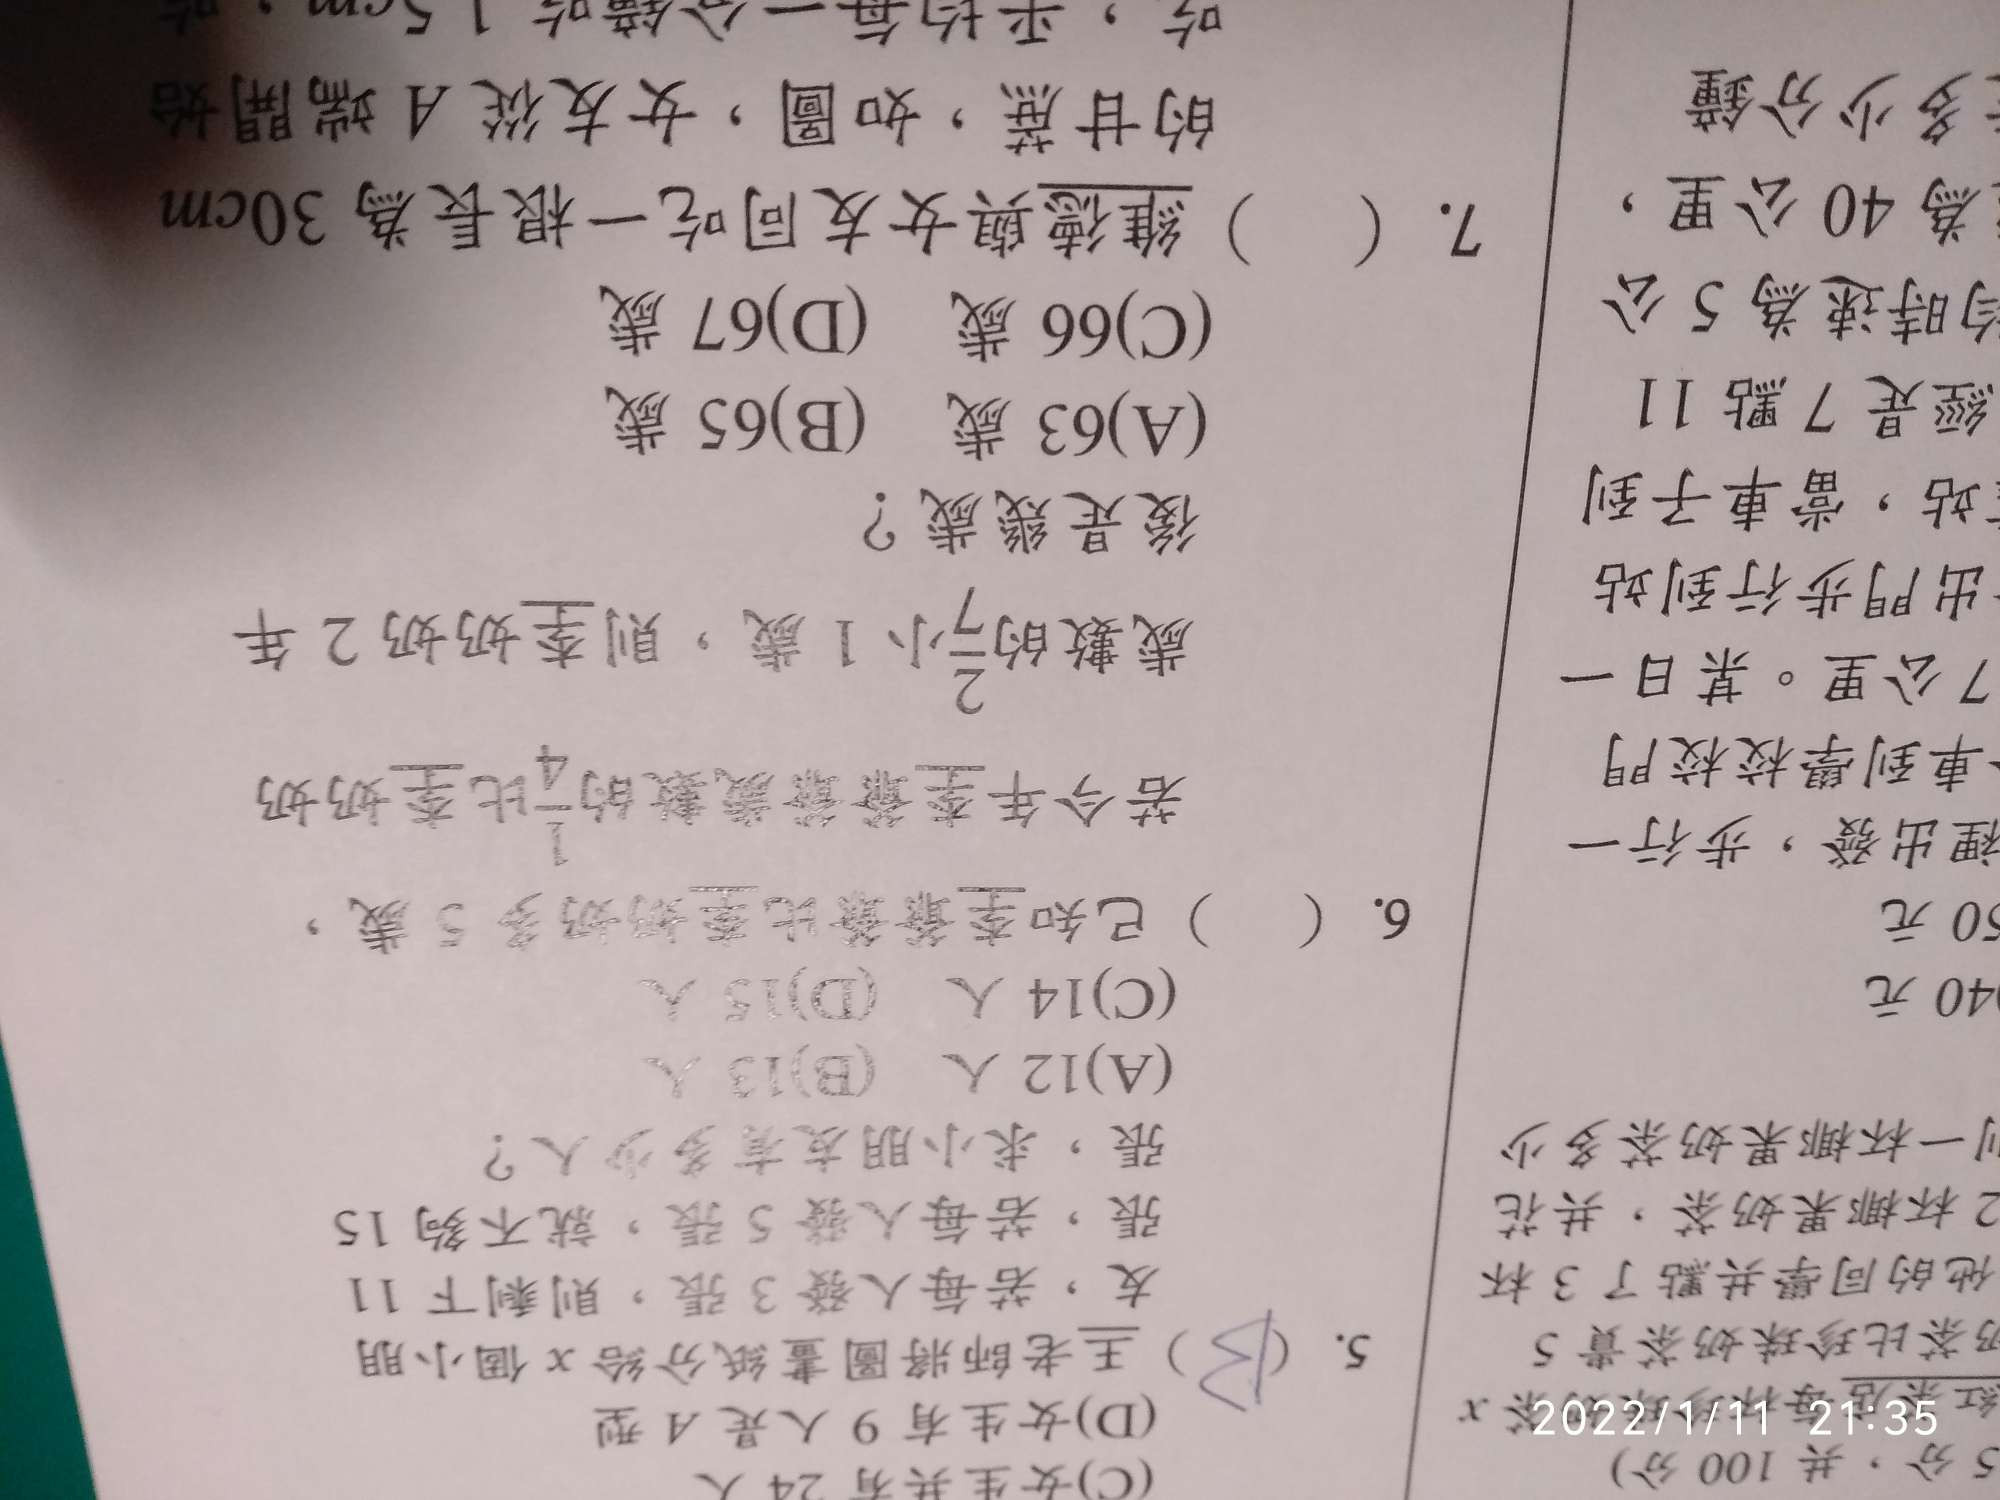 (C)女生共有 24 人
(D)女生有 9 人是 A 型
5. (B) 王老師將圖畫紙分給 x 個小朋
友，若每人發 3 張，則剩下 11
張，若每人發 5 張，就不夠 15
張，求小朋友有多少人？
(A)12 人 (B)13 人
(C)14 人 (D)15 人
6. ( ) 已知李爺爺比李奶奶多 5 歲，
若今年李爺爺歲數的1/4比李奶奶
歲數的2/7小 1 歲，則李奶奶 2 年
後是幾歲？
(A)63 歲 (B)65 歲
(C)66 歲 (D)67 歲
7. ( ) 維德與女友同吃一根長為 30cm
的甘蔗，如圖，女友從 A 端開始
吃，平均每一分鐘吃 1.5cm，
5 分，共 100 分)
紅茶店每杯珍珠奶茶 x
奶茶比珍珠奶茶貴 5
他的同學共點了 3 杯
2 杯椰果奶茶，共花
則一杯椰果奶茶多少
40 元
50 元
裡出發，步行一
車到學校校門
7 公里。某日一
出門步行到站
站，當車子到
經是 7 點 11
均時速為 5 公
為 40 公里，
多少分鐘
2022/1/11 21:35